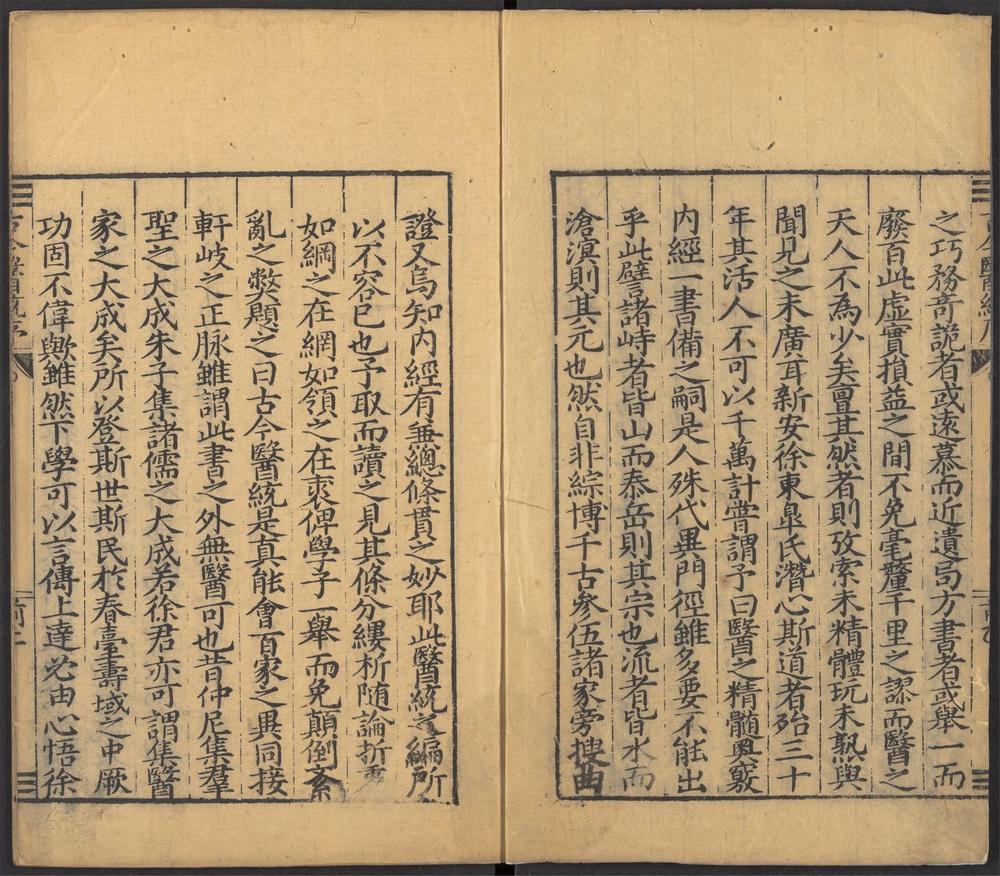 之巧務奇詭者或遠慕而近遺局方書者或舉一而
廢百此虛實損益之間不免毫釐千里之謬而醫之
天人不為少矣亶其然者則攷索未精體玩未熟與
聞見之未廣耳新安徐東臯氏潛心斯道者殆三十
年其活人不可以千萬計嘗謂予曰醫之精髓奧竅
內經一書備之嗣是人殊代異門徑雖多要不能出
乎此譬諸峙者皆山而泰岳則其宗也流者皆水而
滄溟則其元也然自非綜博千古參伍諸家旁搜曲
證又烏知內經有兼總條貫之妙耶此醫統之編所
以不容已也予取而讀之見其條分縷析随論折
如綱之在網如領之在裘俾學子一舉而免顛倒紊
亂之獘題之曰古今醫統是真能會百家之異同接
軒岐之正脉雖謂此書之外無醫可也昔仲尼集羣
聖之大成朱子集諸儒之大成若徐君亦可謂集醫
家之大成矣所以登斯世斯民於春臺壽域之中厥
功固不偉歟雖然下學可以言傳上達必由心悟徐